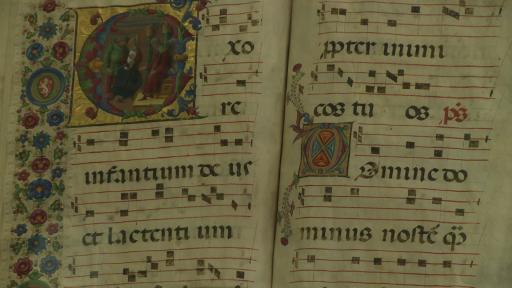 xo
re
infantium de us
et lactenti um
ppter inimi
cos tu os ps
Omine do
minus nosté qȝ